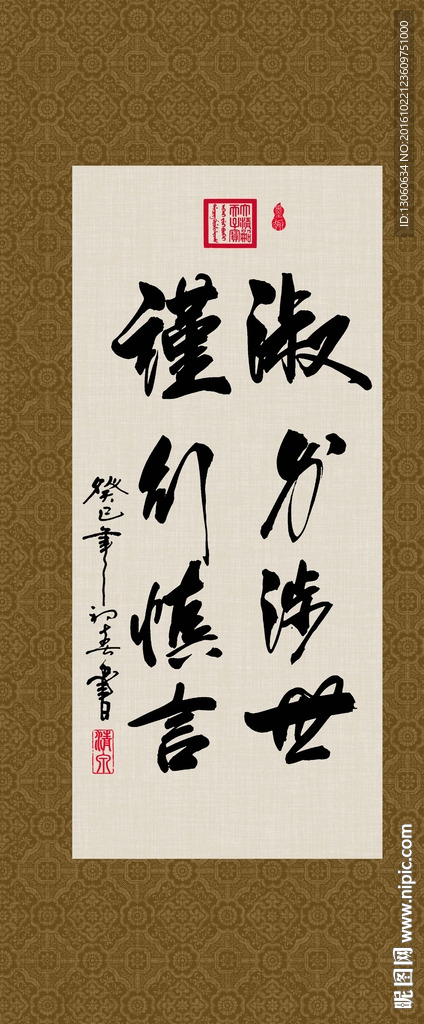 大清嗣
天子寶
淑身涉世
謹行慎言
癸巳年初春書
ID:13060634 NO:20161022123609751000
昵图网 www.nipic.com